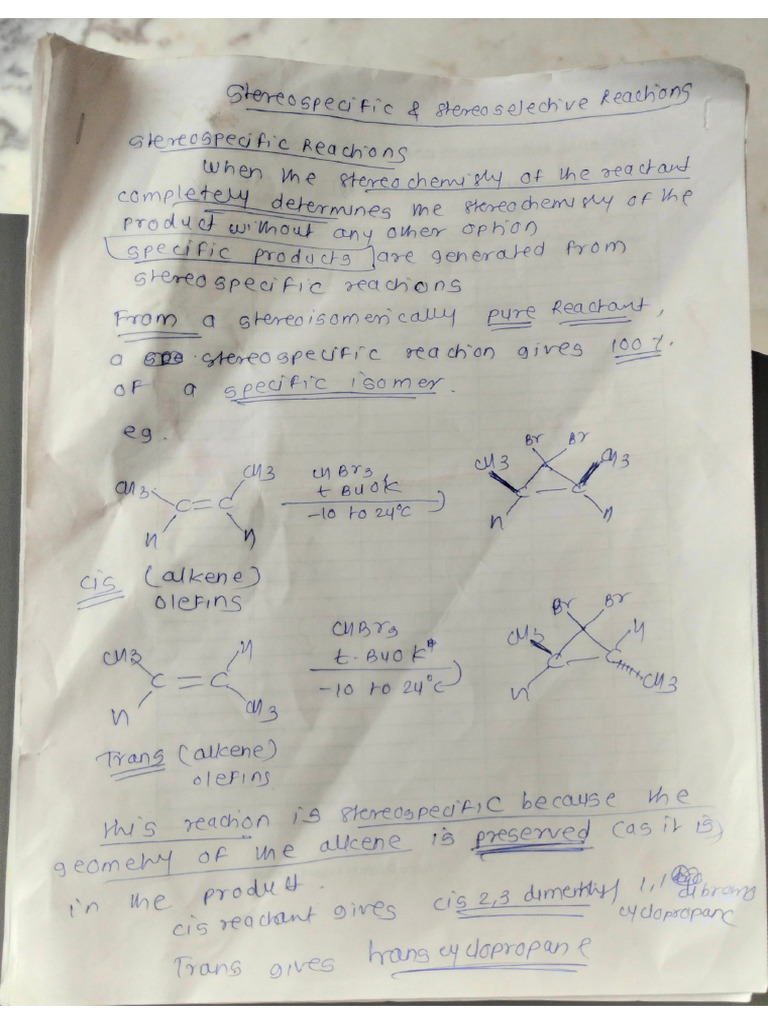 Stereospecific & stereoselective Reactions
Stereospecific Reactions
When the stereochemistry of the reactant
completely determines the stereochemistry of the
product without any other option
specific products are generated from
stereospecific reactions
From a stereoisomerically pure Reactant,
a stereospecific reaction gives 100%.
of a specific isomer.
eg.
CH3 C=C CH3 H H
CHBr3
t BuOK
-10 to 24°C
Br Br CH3 CH3 C C H H
cis (alkene)
olefins
CH3 C=C H H CH3
CHBr3
t-BuOK
-10 to 24°C
Br Br CH3 C C H H CH3
Trans (alkene)
olefins
this reaction is stereospecific because the
geometry of the alkene is preserved (as it is)
in the product.
cis reactant gives cis 2,3 dimethyl 1,1 dibromo
cyclopropane
Trans gives trans cyclopropane